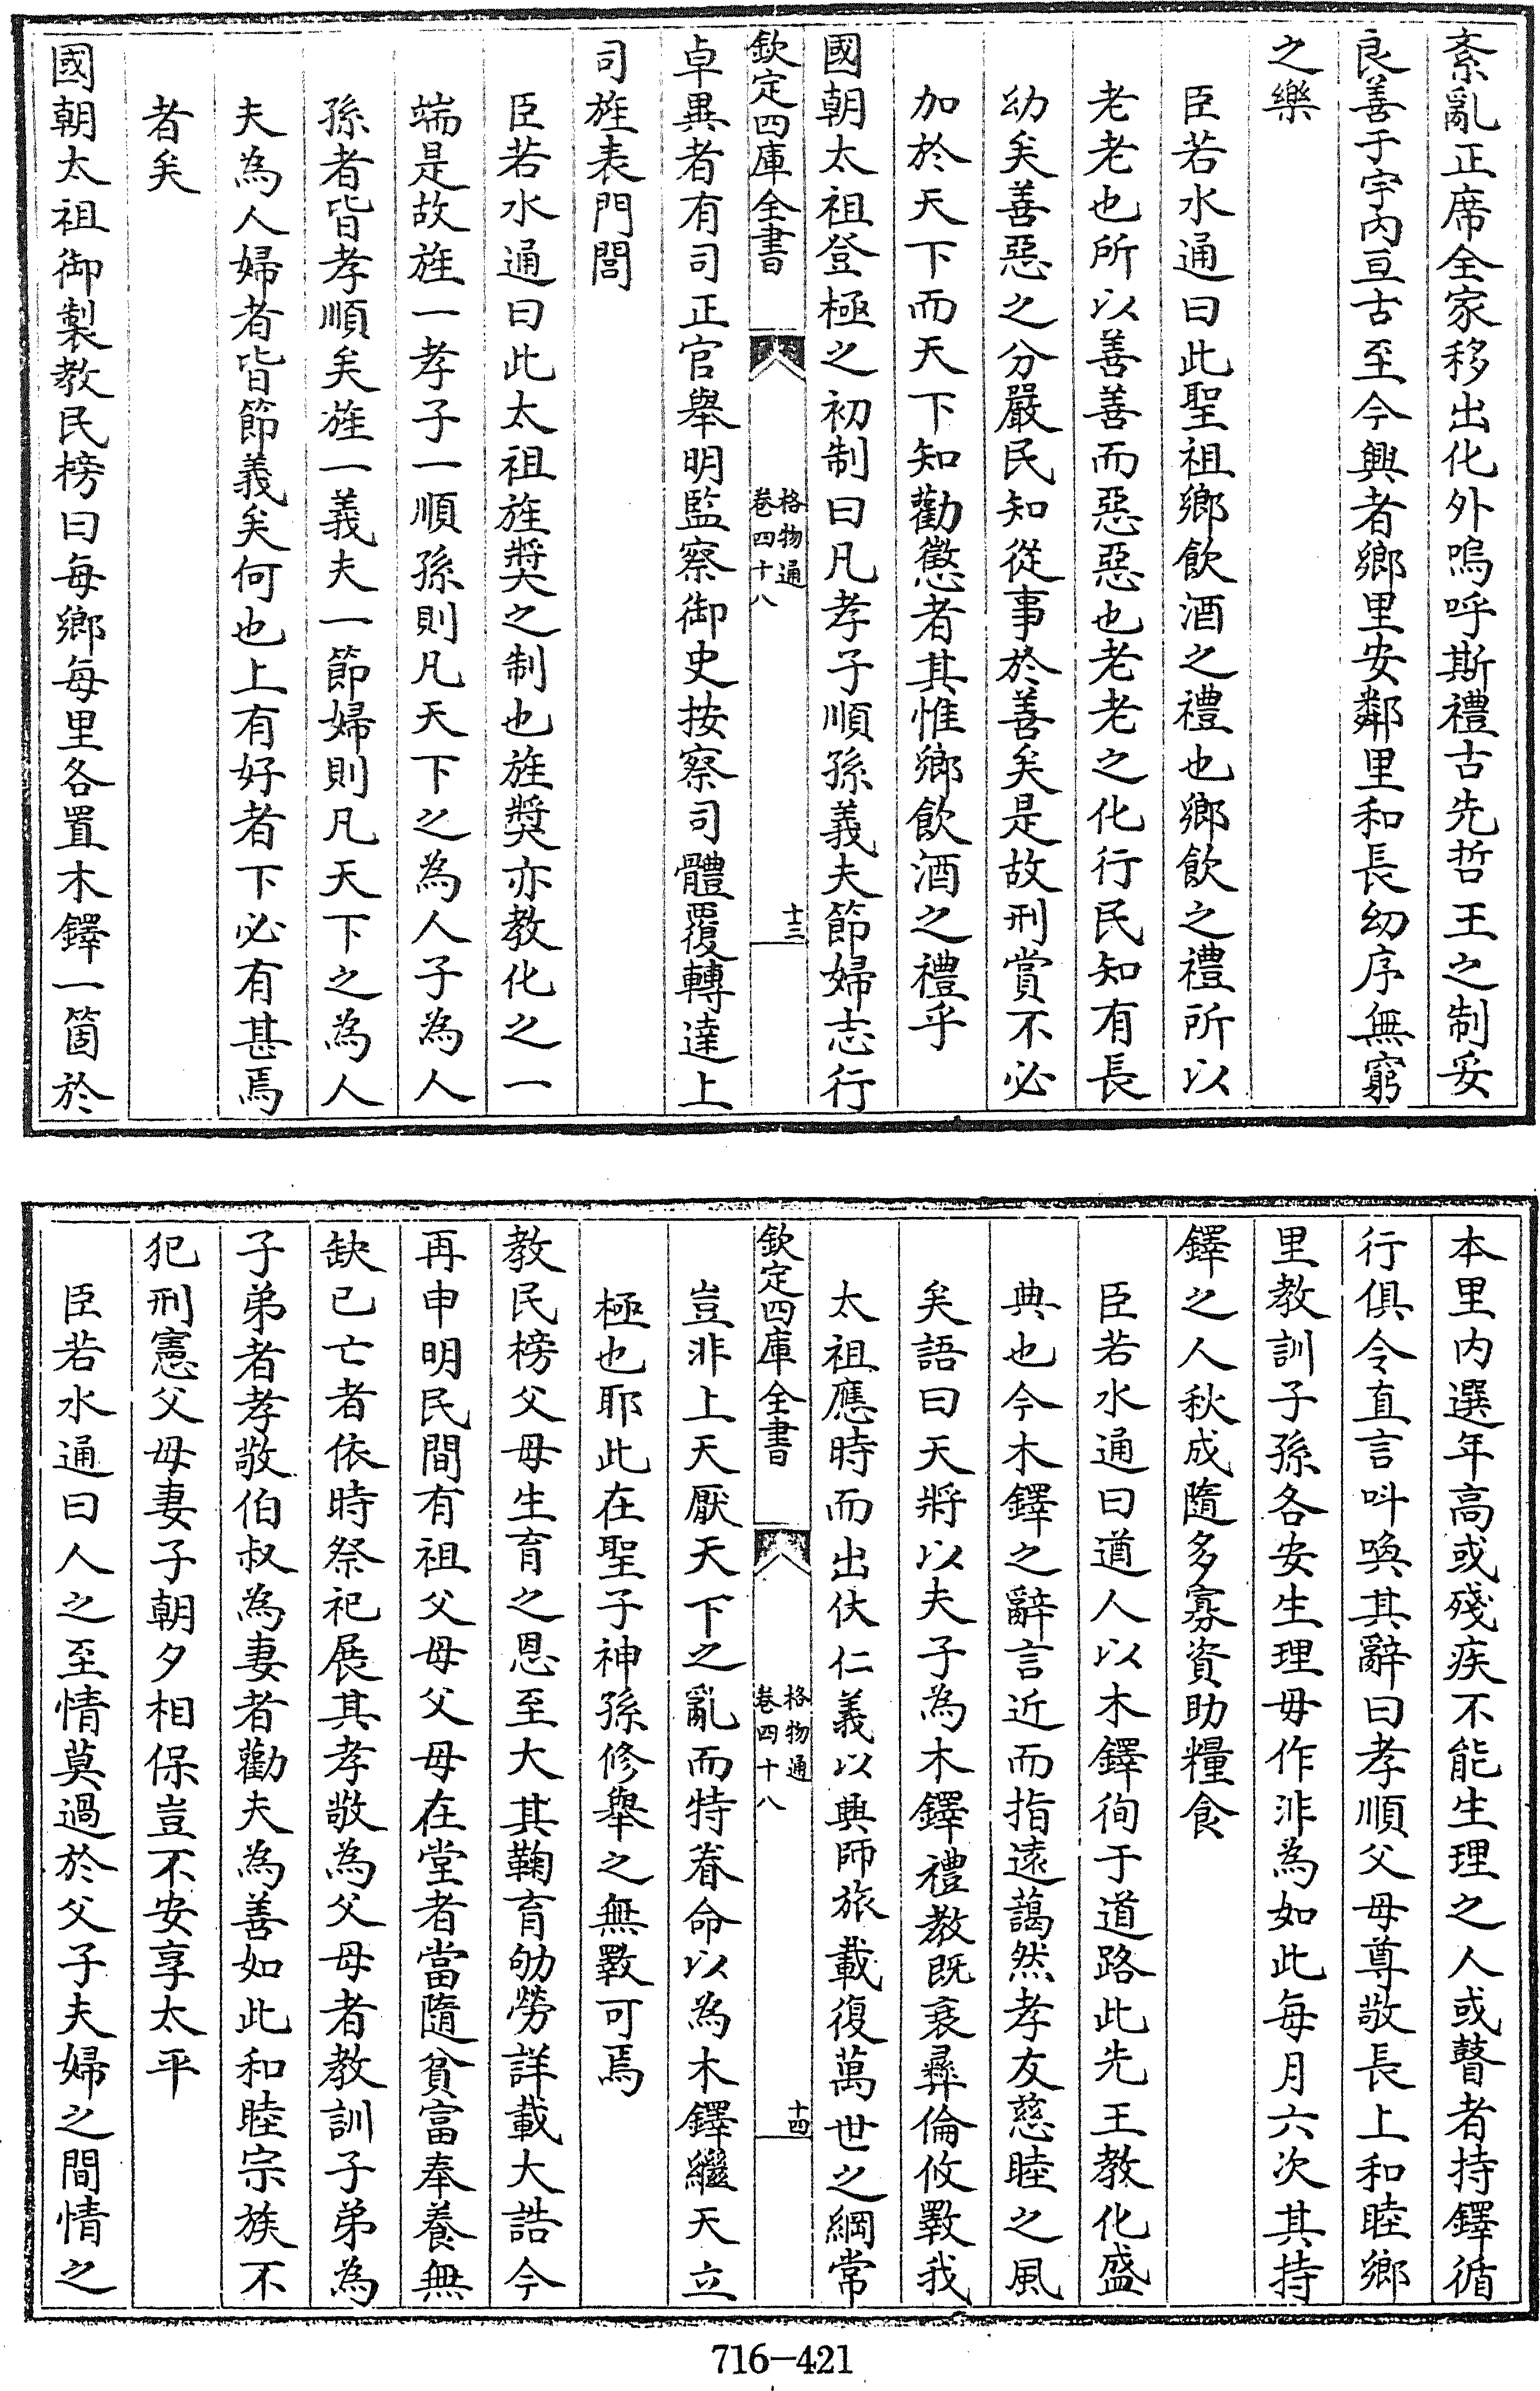 紊亂正席全家移出化外嗚呼斯禮古先哲王之制妥
良善于宇內亘古至今興者鄉里安鄰里和長幼序無窮
之樂
臣若水通曰此聖祖鄉飲酒之禮也鄉飲之禮所以
老老也所以善善而惡惡也老老之化行民知有長
幼矣善惡之分嚴民知從事於善矣是故刑賞不必
加於天下而天下知勸懲者其惟鄉飲酒之禮乎
國朝太祖登極之初制曰凡孝子順孫義夫節婦志行
欽定四庫全書
格物通
卷四十八
十三
卓異者有司正官舉明監察御史按察司體覆轉達上
司旌表門閭
臣若水通曰此太祖旌獎之制也旌獎亦教化之一
端是故旌一孝子一順孫則凡天下之為人子為人
孫者皆孝順矣旌一義夫一節婦則凡天下之為人
夫為人婦者皆節義矣何也上有好者下必有甚焉
者矣
國朝太祖御製教民榜曰每鄉每里各置木鐸一箇於
本里內選年高或殘疾不能生理之人或瞽者持鐸循
行俱令直言呌喚其辭曰孝順父母尊敬長上和睦鄉
里教訓子孫各安生理毋作非為如此每月六次其持
鐸之人秋成隨多寡資助糧食
臣若水通曰遒人以木鐸徇于道路此先王教化盛
典也今木鐸之辭言近而指遠藹然孝友慈睦之風
矣語曰天將以夫子為木鐸禮教既衰彞倫攸斁我
太祖應時而出伏仁義以興師旅載復萬世之綱常
欽定四庫全書
格物通
卷四十八
十四
豈非上天厭天下之亂而特眷命以為木鐸繼天立
極也耶此在聖子神孫修舉之無斁可焉
教民榜父母生育之恩至大其鞠育劬勞詳載大誥今
再申明民間有祖父母父母在堂者當隨貧富奉養無
缺已亡者依時祭祀展其孝敬為父母者教訓子弟為
子弟者孝敬伯叔為妻者勸夫為善如此和睦宗族不
犯刑憲父母妻子朝夕相保豈不安享太平
臣若水通曰人之至情莫過於父子夫婦之間情之
716-421